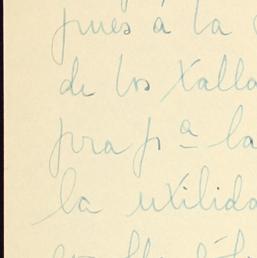 pues á la
de los Xalla
pra pª la
la utilida